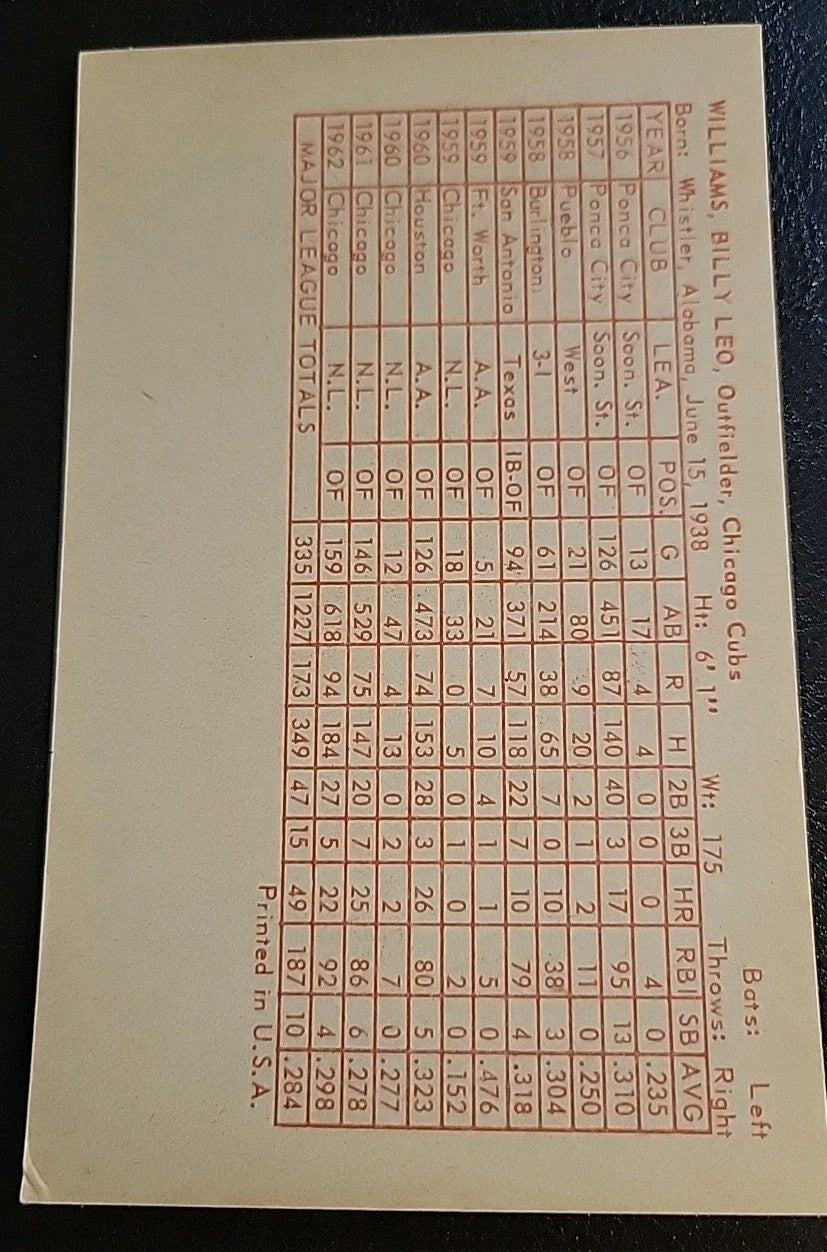 WILLIAMS, BILLY LEO, Outfielder, Chicago Cubs Bats: Left
Born: Whistler, Alabama, June 15, 1938 Ht: 6' 1" Wt: 175 Throws: Right
YEAR CLUB LEA. POS. G AB R H 2B 3B HR RBI SB AVG
1956 Ponca City Soon. St. OF 13 17 4 4 0 0 0 4 0 .235
1957 Ponca City Soon. St. OF 126 451 87 140 40 3 17 95 13 .310
1958 Pueblo West OF 21 80 9 20 2 1 2 11 0 .250
1958 Burlington 3-I OF 61 214 38 65 7 0 10 38 3 .304
1959 San Antonio Texas IB-OF 94 371 57 118 22 7 10 79 4 .318
1959 Ft. Worth A.A. OF 5 21 7 10 4 1 1 5 0 .476
1959 Chicago N.L. OF 18 33 0 5 0 1 0 2 0 .152
1960 Houston A.A. OF 126 473 74 153 28 3 26 80 5 .323
1960 Chicago N.L. OF 12 47 4 13 0 2 2 7 0 .277
1961 Chicago N.L. OF 146 529 75 147 20 7 25 86 6 .278
1962 Chicago N.L. OF 159 618 94 184 27 5 22 92 4 .298
MAJOR LEAGUE TOTALS 335 1227 173 349 47 15 49 187 10 .284
Printed in U.S.A.